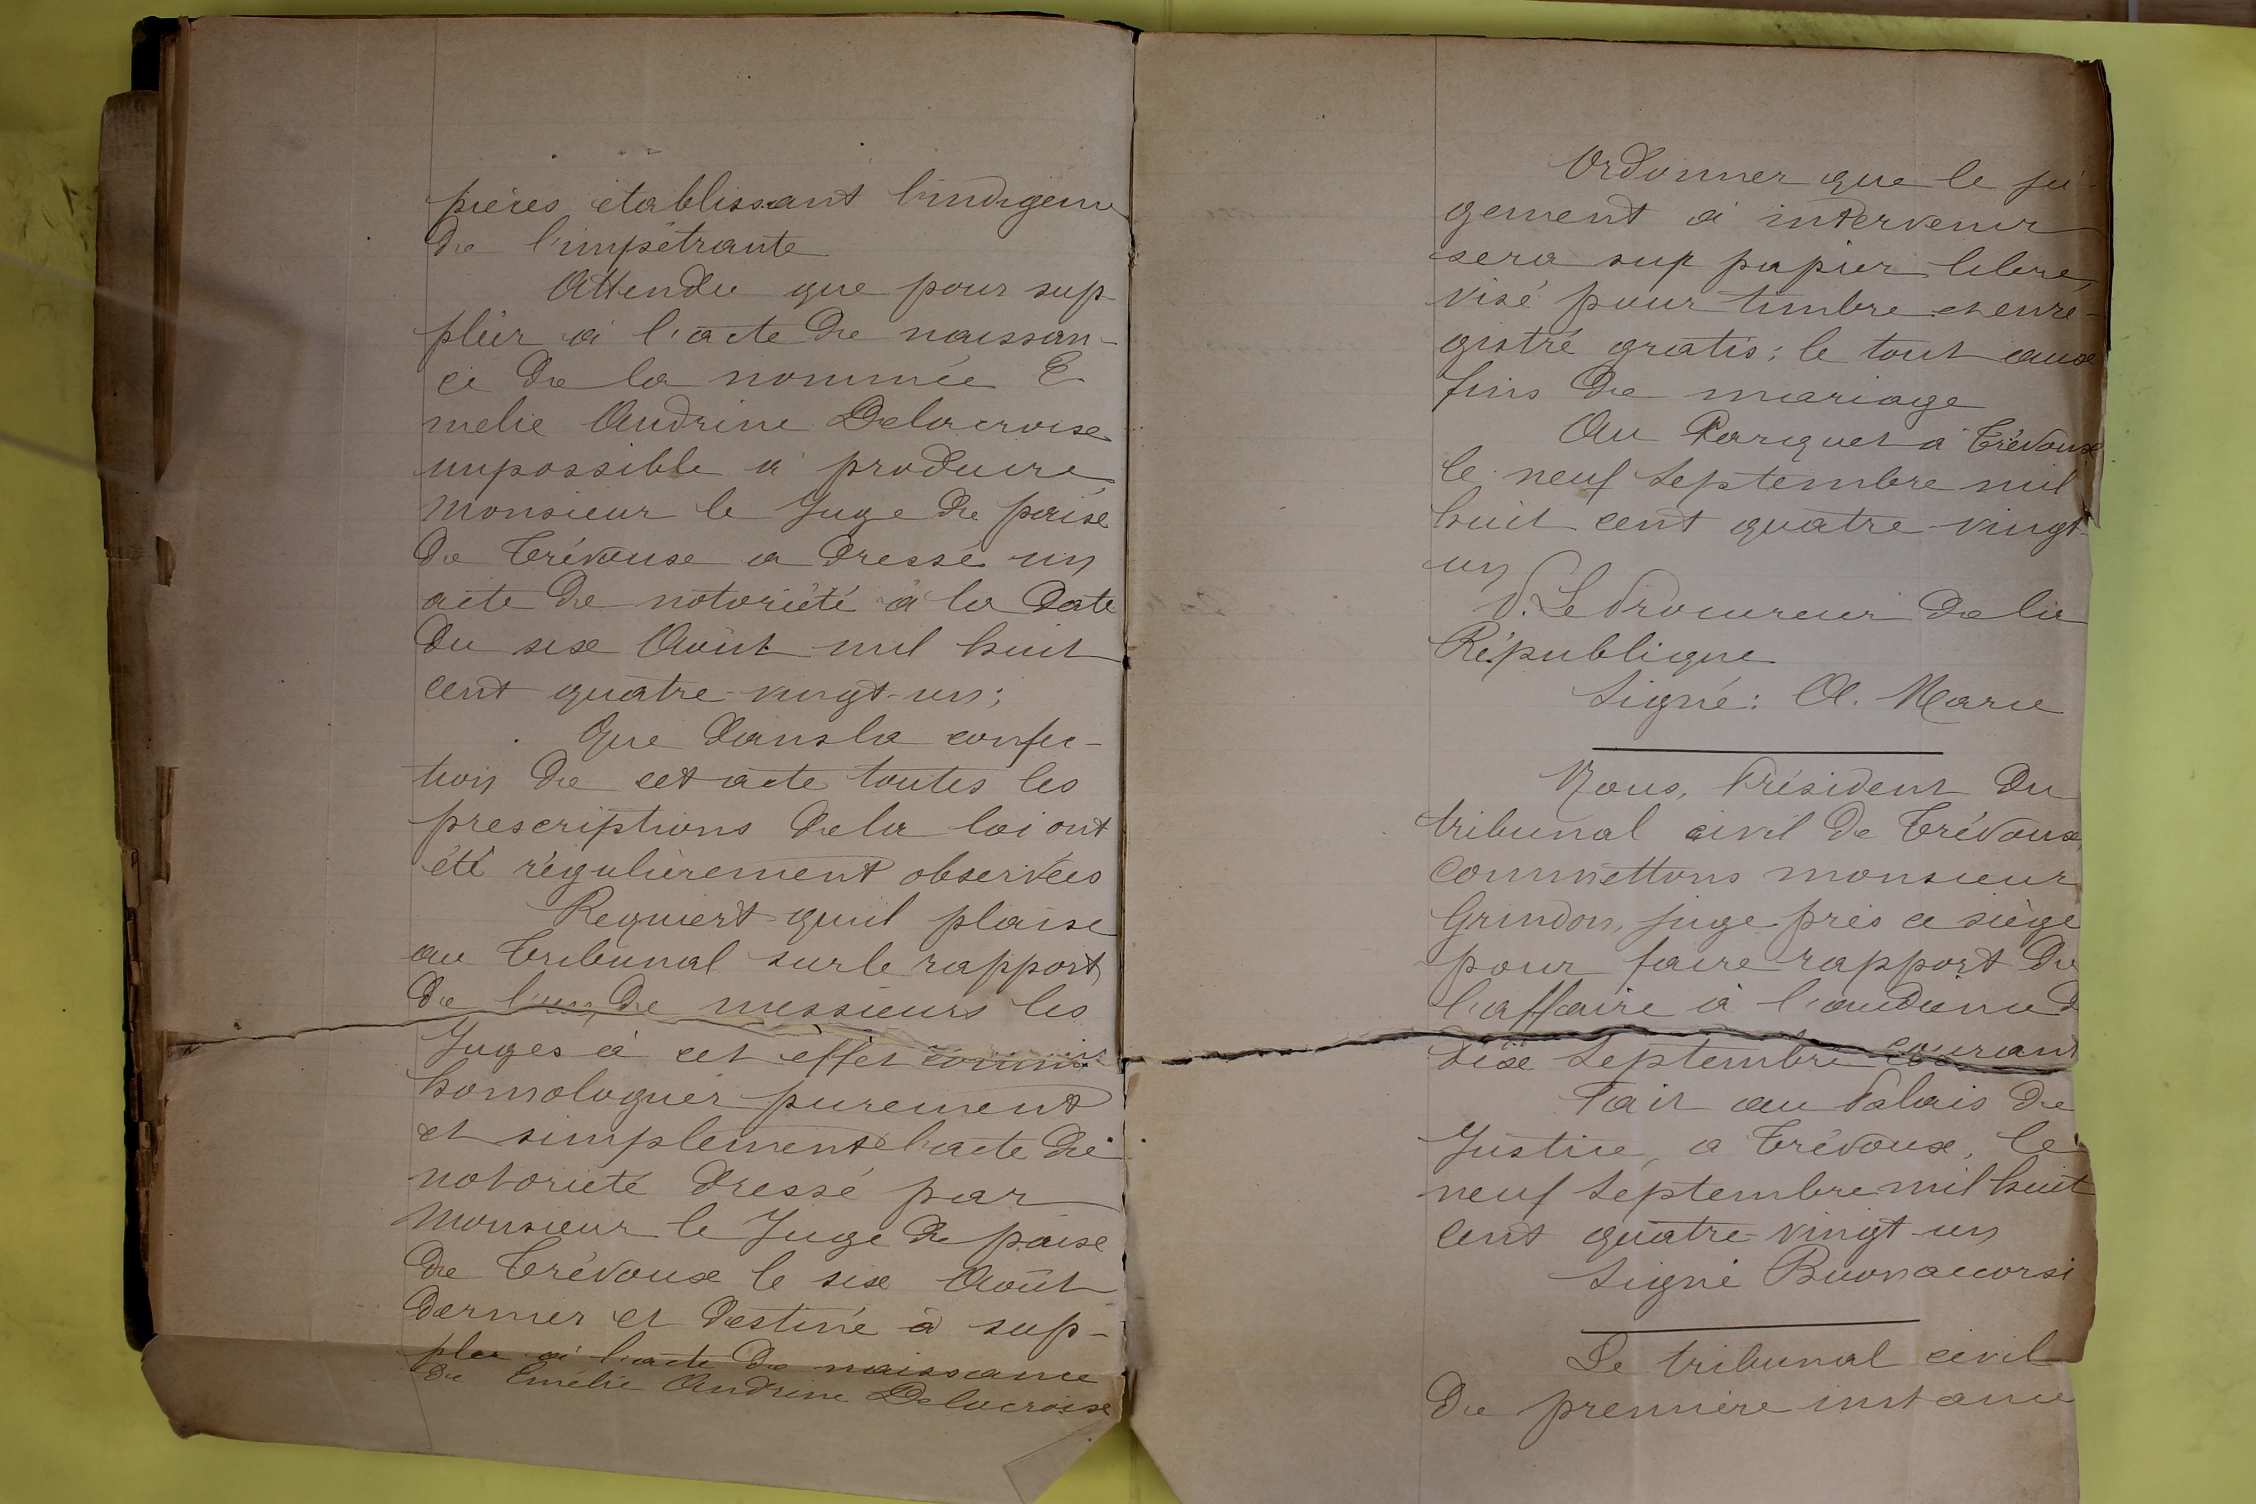 pièces établissant l'indigence
de l'impétrante
Attendu que pour sup-
pléer à l'acte de naissan-
ce de la nommée E
melie Andrine Delacroix
impossible a produire
Monsieur le Juge de paix
de Trévoux a dressé un
acte de notoriété à la date
du six Août mil huit
cent quatre-vingt-un;
Que dans la confec-
tion de cet acte toutes les
prescriptions de la loi ont
été régulièrement observées
Requiert qu'il plaise
au Tribunal sur le rapport
de l'un de messieurs les
Juges à cet effet commis
homologuer purement
et simplement l'acte de
notoriété dressé par
Monsieur le Juge de paix
de Trévoux le six Août
dernier et destiné à sup-
pléer à l'acte de naissance
de Emélie Andrine Delacroix
Ordonner que le ju-
gement à intervenir
sera sur papier libre,
visé pour timbre et enre-
gistré gratis; le tout aux
fins de mariage
Au Parquet à Trévoux
le neuf Septembre mil
huit cent quatre-vingt-
un
P. Le Procureur de la
République
Signé: A. Marie
Nous, Président du
tribunal civil de Trévoux,
commettons monsieur
Grindon, juge près ce siège
pour faire rapport de
l'affaire à l'audience d
dix Septembre courant
Fait au Palais de
Justice, a Trévoux, le
neuf Septembre mil huit
cent quatre-vingt-un
Signé Buonaccorsi
Le tribunal civil
de première instance